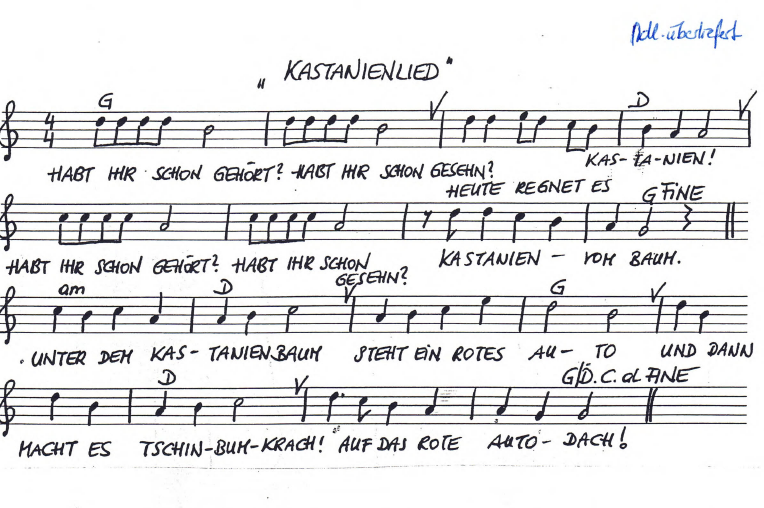 Mdl. überliefert
„KASTANIENLIED"
G D
HABT IHR SCHON GEHÖRT? HABT IHR SCHON GESEHN? KAS-TA-NIEN!
HEUTE REGNET ES
G FINE
HABT IHR SCHON GEHÖRT? HABT IHR SCHON GESEHN? KASTANIEN - VOM BAUM.
am D G
UNTER DEM KAS-TANIENBAUM STEHT EIN ROTES AU-TO UND DANN
D G/D.C. al FINE
MACHT ES TSCHIN-BUM-KRACH! AUF DAS ROTE AUTO-DACH!